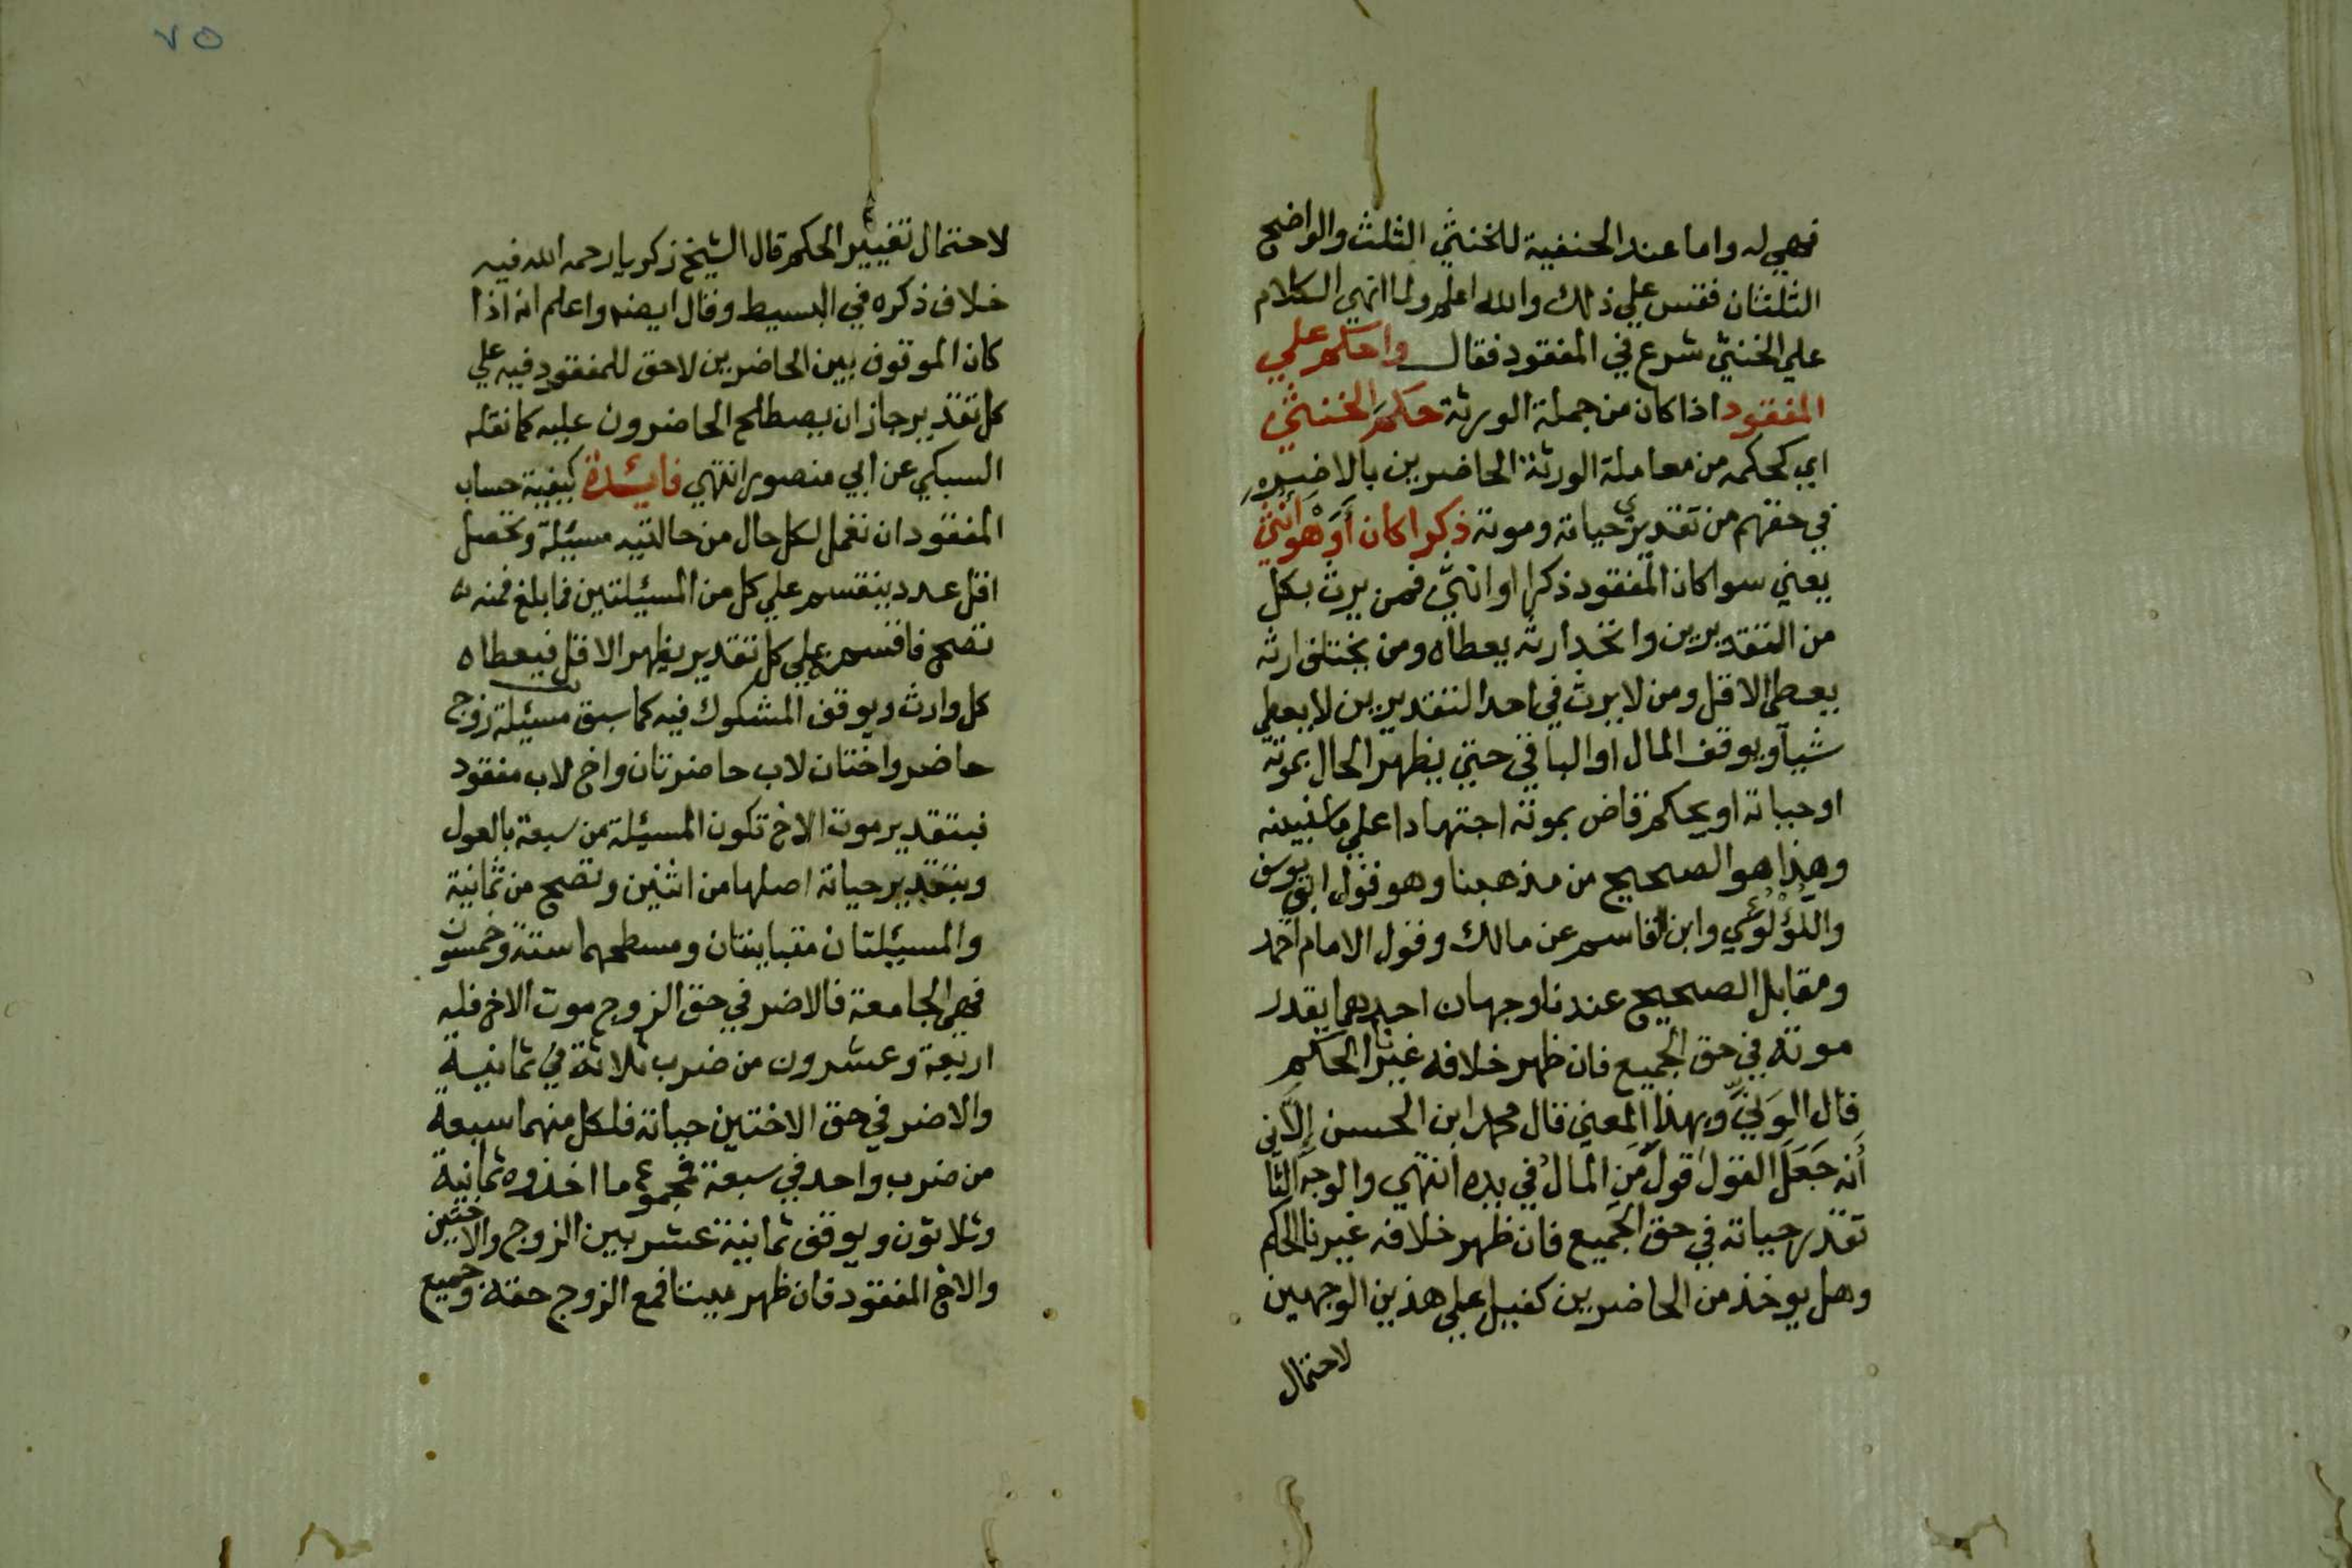 فهي له واما عند الحنفية للخنثي الثلث والواضح
الثلثان فقس علي ذلك والله اعلم ولما انهي الكلام
علي الخنثي شرع في المفقود فقال واحكم علي
المفقود اذا كان من جملة الورثة حكم الخنثي
اي كحكمه من معاملة الورثة الحاضرين بالاضر
في حقهم من تقديري حياته وموته ذكرا كان أو هو أنثى
يعني سوا كان المفقود ذكرا او انثي فمن يرث بكل
من التقديرين واتحد ارثه يعطاه ومن يختلف ارثه
يعطي الاقل ومن لا يرث في احد التقديرين لا يعطي
شيآ ويوقف المال او الباقي حتي يظهر الحال بموته
او حياته او يحكم قاض بموته اجتهادا علي ما نبينه
وهذا هو الصحيح من مذهبنا وهو قول ابي يوسف
واللؤلؤي وابن القاسم عن مالك وقول الامام احمد
ومقابل الصحيح عندنا وجهان احدهما يقدر
موته في حق الجميع فان ظهر خلافه غيرنا الحكم
قال الوني وبهذا المعني قال محمد ابن الحسن إلا
أنه جعل القول قول من المال في يده انتهي والوجه الثا
تقدر حياته في حق الجميع فان ظهر خلافه غيرنا الحكم
وهل يوخذ من الحاضرين كفيل علي هذين الوجهين
لاحتمال
٧٥
لاحتمال تغيير الحكم قال الشيخ زكريا رحمه الله فيه
خلاف ذكره في البسيط وقال ايضه واعلم انه اذا
كان الموقوف بين الحاضرين لا حق للمفقود فيه علي
كل تقدير جاز ان يصطلح الحاضرون عليه كما نقله
السبكي عن ابي منصور انتهي فايئدة كيفية حساب
المفقود ان تعمل لكل حال من حالتيه مسيئلة وتحصل
اقل عدد ينقسم علي كل من المسيئلتين فما بلغ فمنه
تصح فاقسمه علي كل تقدير يظهر الاقل فيعطاه
كل وارث ويوقف المشكوك فيه كما سبق مسيئلة زوج
حاضر واختان لاب حاضرتان واخ لاب مفقود
فبتقدير موت الاخ تكون المسيئلة من سبعة بالعول
وبتقدير حياته اصلها من اثنين وتصح من ثمانية
والمسيئلتان متباينتان ومسطحهما ستة وخمسون
فهي الجامعة فالاضر في حق الزوج موت الاخ فله
اربعة وعشرون من ضرب ثلاثة في ثمانية
والاضر في حق الاختين حياته فلكل منهما سبعة
من ضرب واحد في سبعة فمجموع ما اخذوه ثمانية
وثلاثون ويوقف ثمانية عشر بين الزوج والاختين
والاخ المفقود فان ظهر ميتا فمع الزوج حقه وجميع